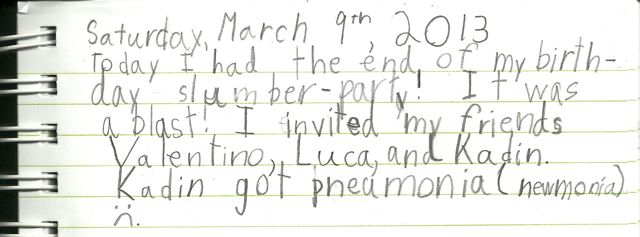 Saturday, March 9th, 2013
Today I had the end of my birth-
day slumber-party! It was
a blast! I invited my friends
Valentino, Luca, and Kadin.
Kadin got pneamonia (newmonia)
:(.